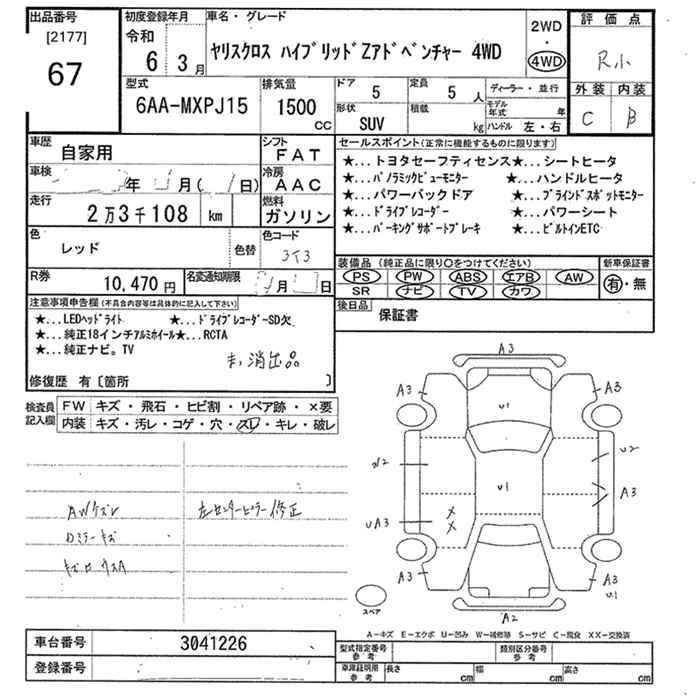 出品番号
[2177]
67
初度登録年月
令和
6 3月
車名・グレード
ヤリスクロス ハイブリッドZアドベンチャー 4WD
2WD
・
4WD
評価点
R小
外装 内装
C B
型式
6AA-MXPJ15
排気量
1500
CC
ドア
5
定員
5 人
ディーラー・並行
モデル年式 年
形状
SUV
積載
kg
ハンドル 左・右
車歴
自家用
シフト
FAT
車検
年 月( 日)
冷房
AAC
走行
2万3千108 km
燃料
ガソリン
色
レッド
色替
色コード
3T3
R券
10,470円
名変通知期限
月 日
セールスポイント(正常に機能するものに限ります)
★...トヨタセーフティセンス★...シートヒータ
★...パノラミックビューモニター ★...ハンドルヒータ
★...パワーバックドア ★...ブラインドスポットモニター
★...ドライブレコーダー ★...パワーシート
★...パーキングサポートブレーキ ★...ビルトインETC
装備品(純正品に限り○をつけてください)
PS PW ABS エアB AW
SR ナビ TV カワ
新車保証書
有・無
後日品
保証書
注意事項申告欄(不具合内容等は具体的に記入して下さい)
★...LEDヘッドライト ★...ドライブレコーダーSD欠
★...純正18インチアルミホイール★...RCTA
★...純正ナビ。TV
消臭品
修復歴 有〔箇所 〕
検査員記入欄
FW キズ・飛石・ヒビ割・リペア跡・×要
内装 キズ・汚レ・コゲ・穴・スレ・キレ・破レ
AWケズレ
Dミラーキズ
左センターピラー修正
A3
A3
A3
U1
W2
U2
U1
A3
UA3
A3
A3
U1
A2
スペア
A-キズ E-エクボ U-凹み W-補修跡 S-サビ C-腐食 XX-交換済
車台番号
3041226
登録番号
型式指定番号
参考
類別区分番号
参考
車庫証明用
参考
長さ cm
幅 cm
高さ cm